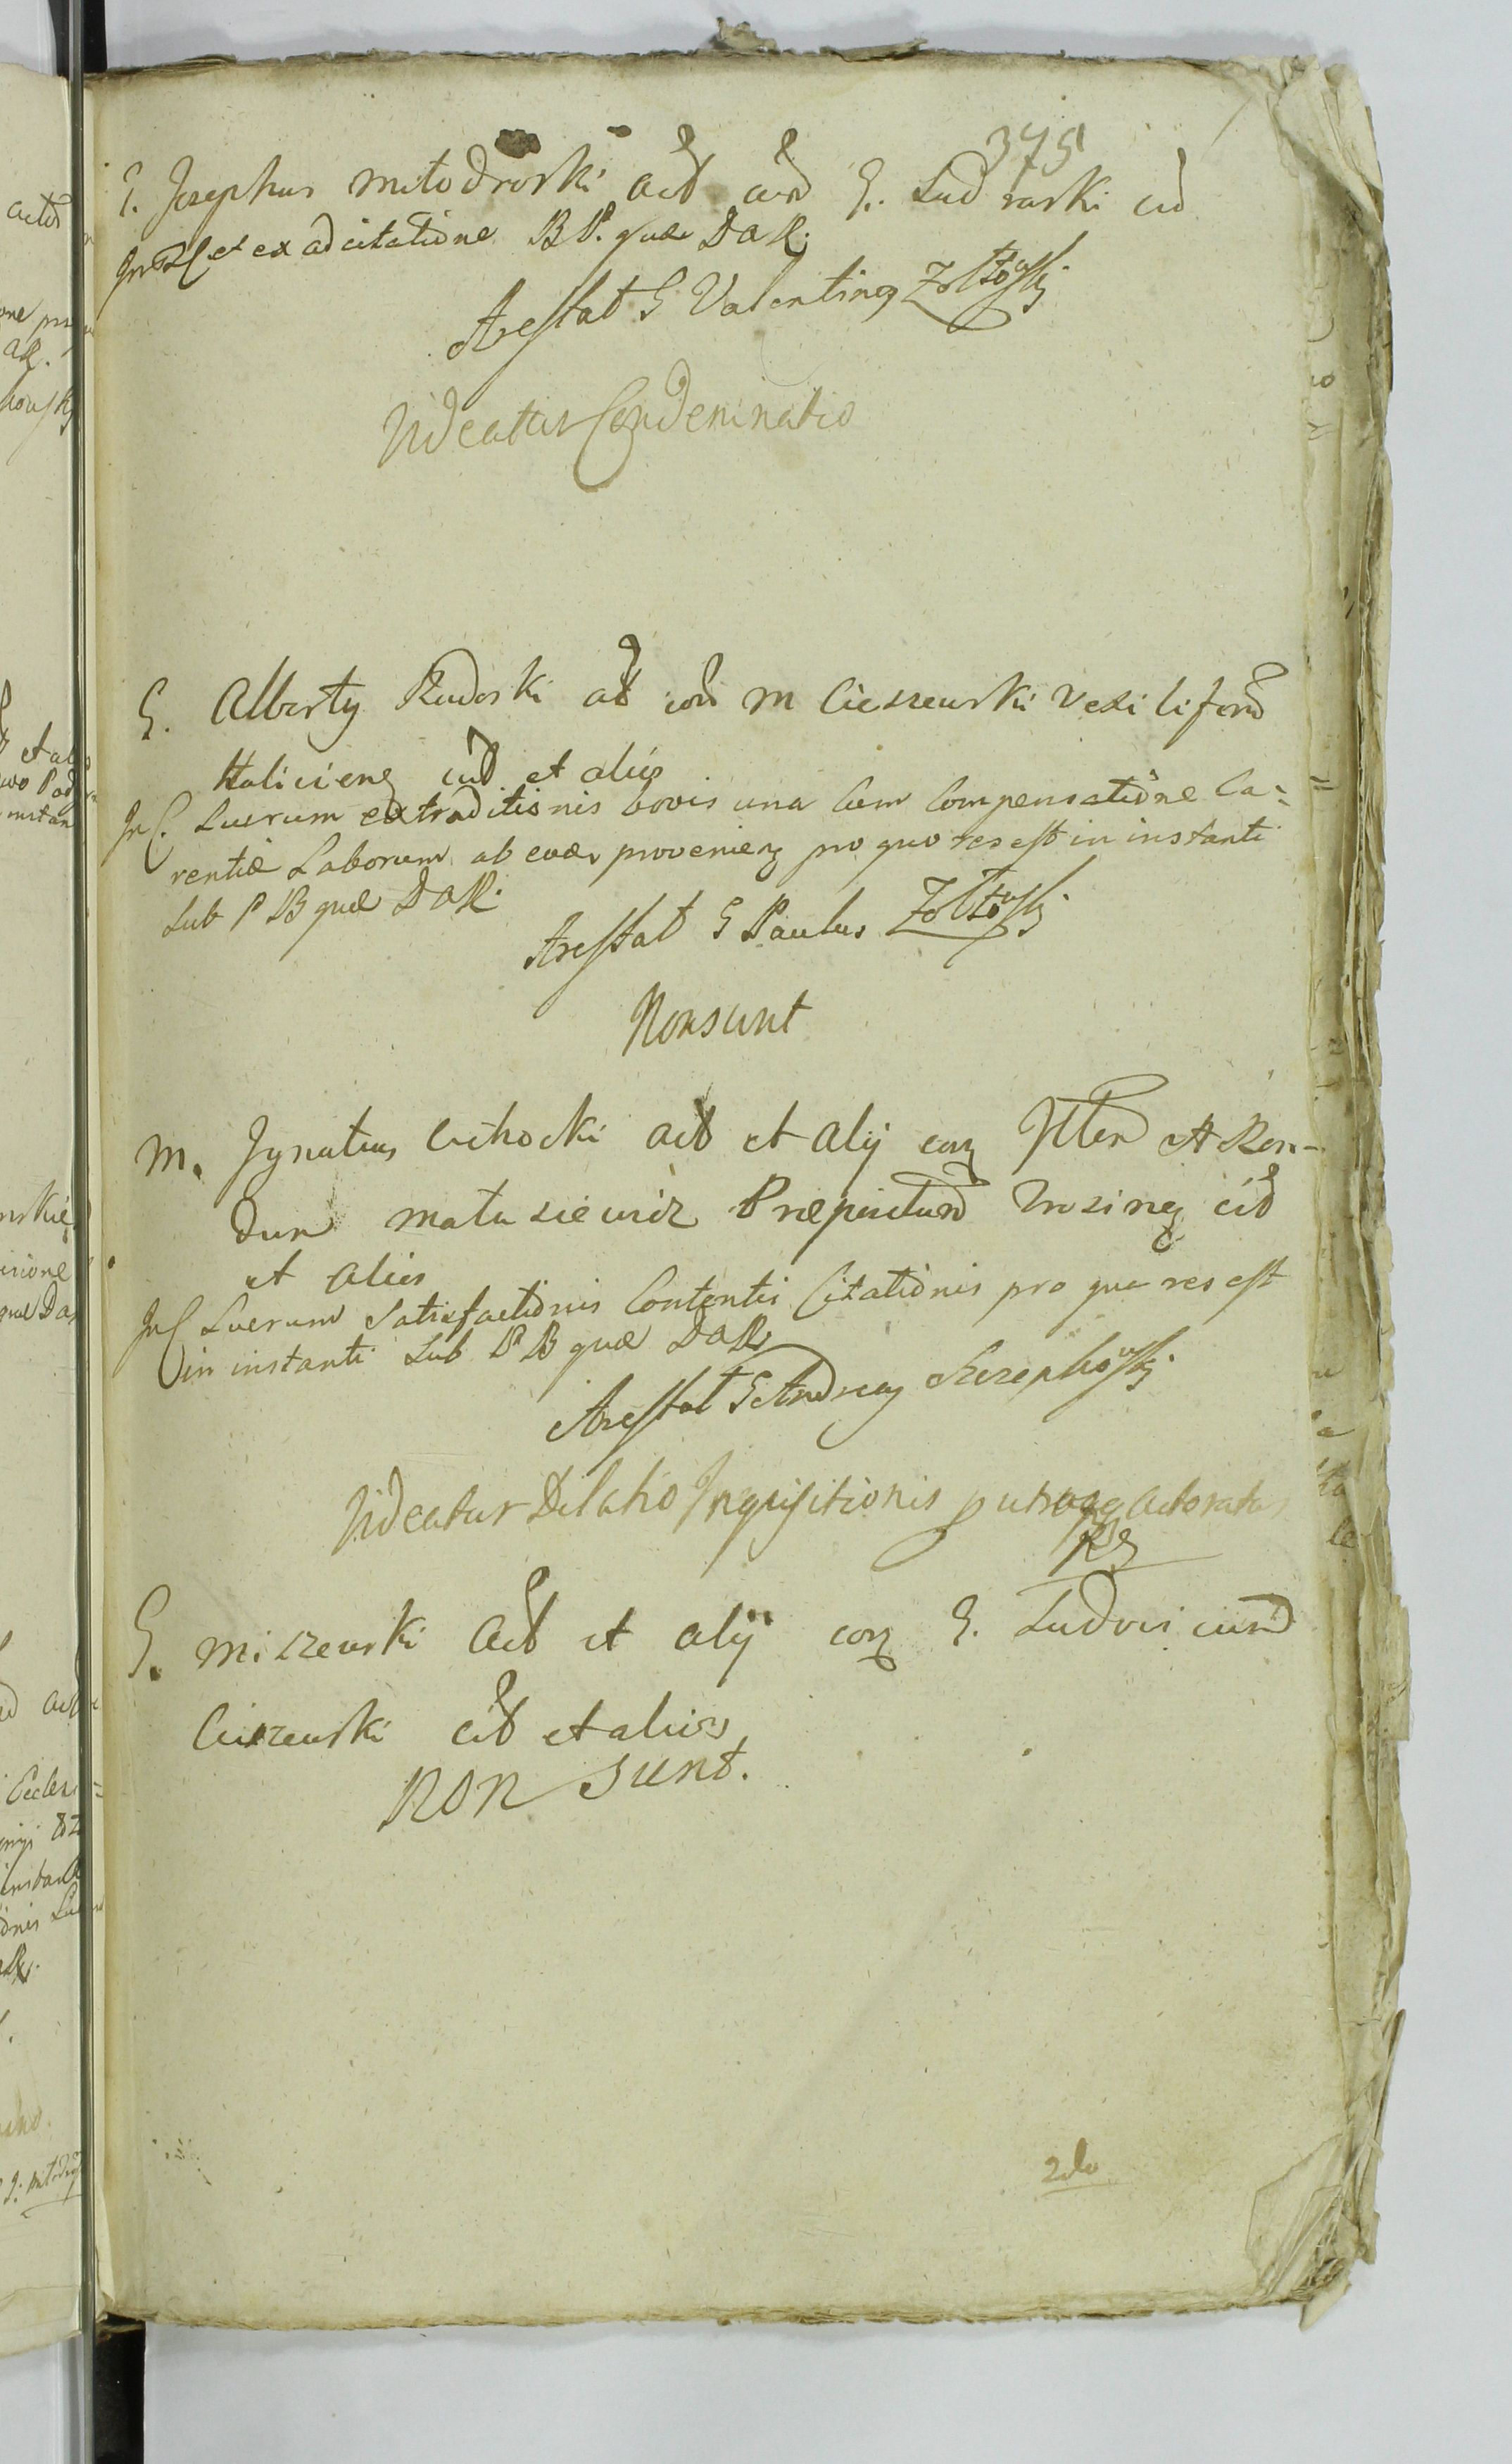 375
G. Josephus Młodroski act con G. Ludraski cit
In et ex adcitatione B P. quæ D a R.
Arestat G Valentinꝯ Zołtowski
Videatur Condemnatio
G. Albertꝯ Rudoski act con M Cieszewski Vexiliferum
Haliciens cit et alios
In Lucrum extraditionis bovis una Cum Compensatione Ca=
rentiæ Laborum ab provenien pro quo res est in instanti
Sub P B quæ D a R.
Arestat G Paulus Zołtowski
Non sunt
M. Ignatius Cichocki act et alij con A Ren-
dum Matusiewicz Præpositum cit
et alios
In Lucrum Satisfactionis Contentis Citationis pro quo res est
in instanti Sub P B quæ D a R
Arestat G Andreas
Videatur Dilatio Inquisitionis p utraqꝫ
G. Miszewski Act et alij con G. Ludovicum
Ciszewski cit et alios
Non sunt.